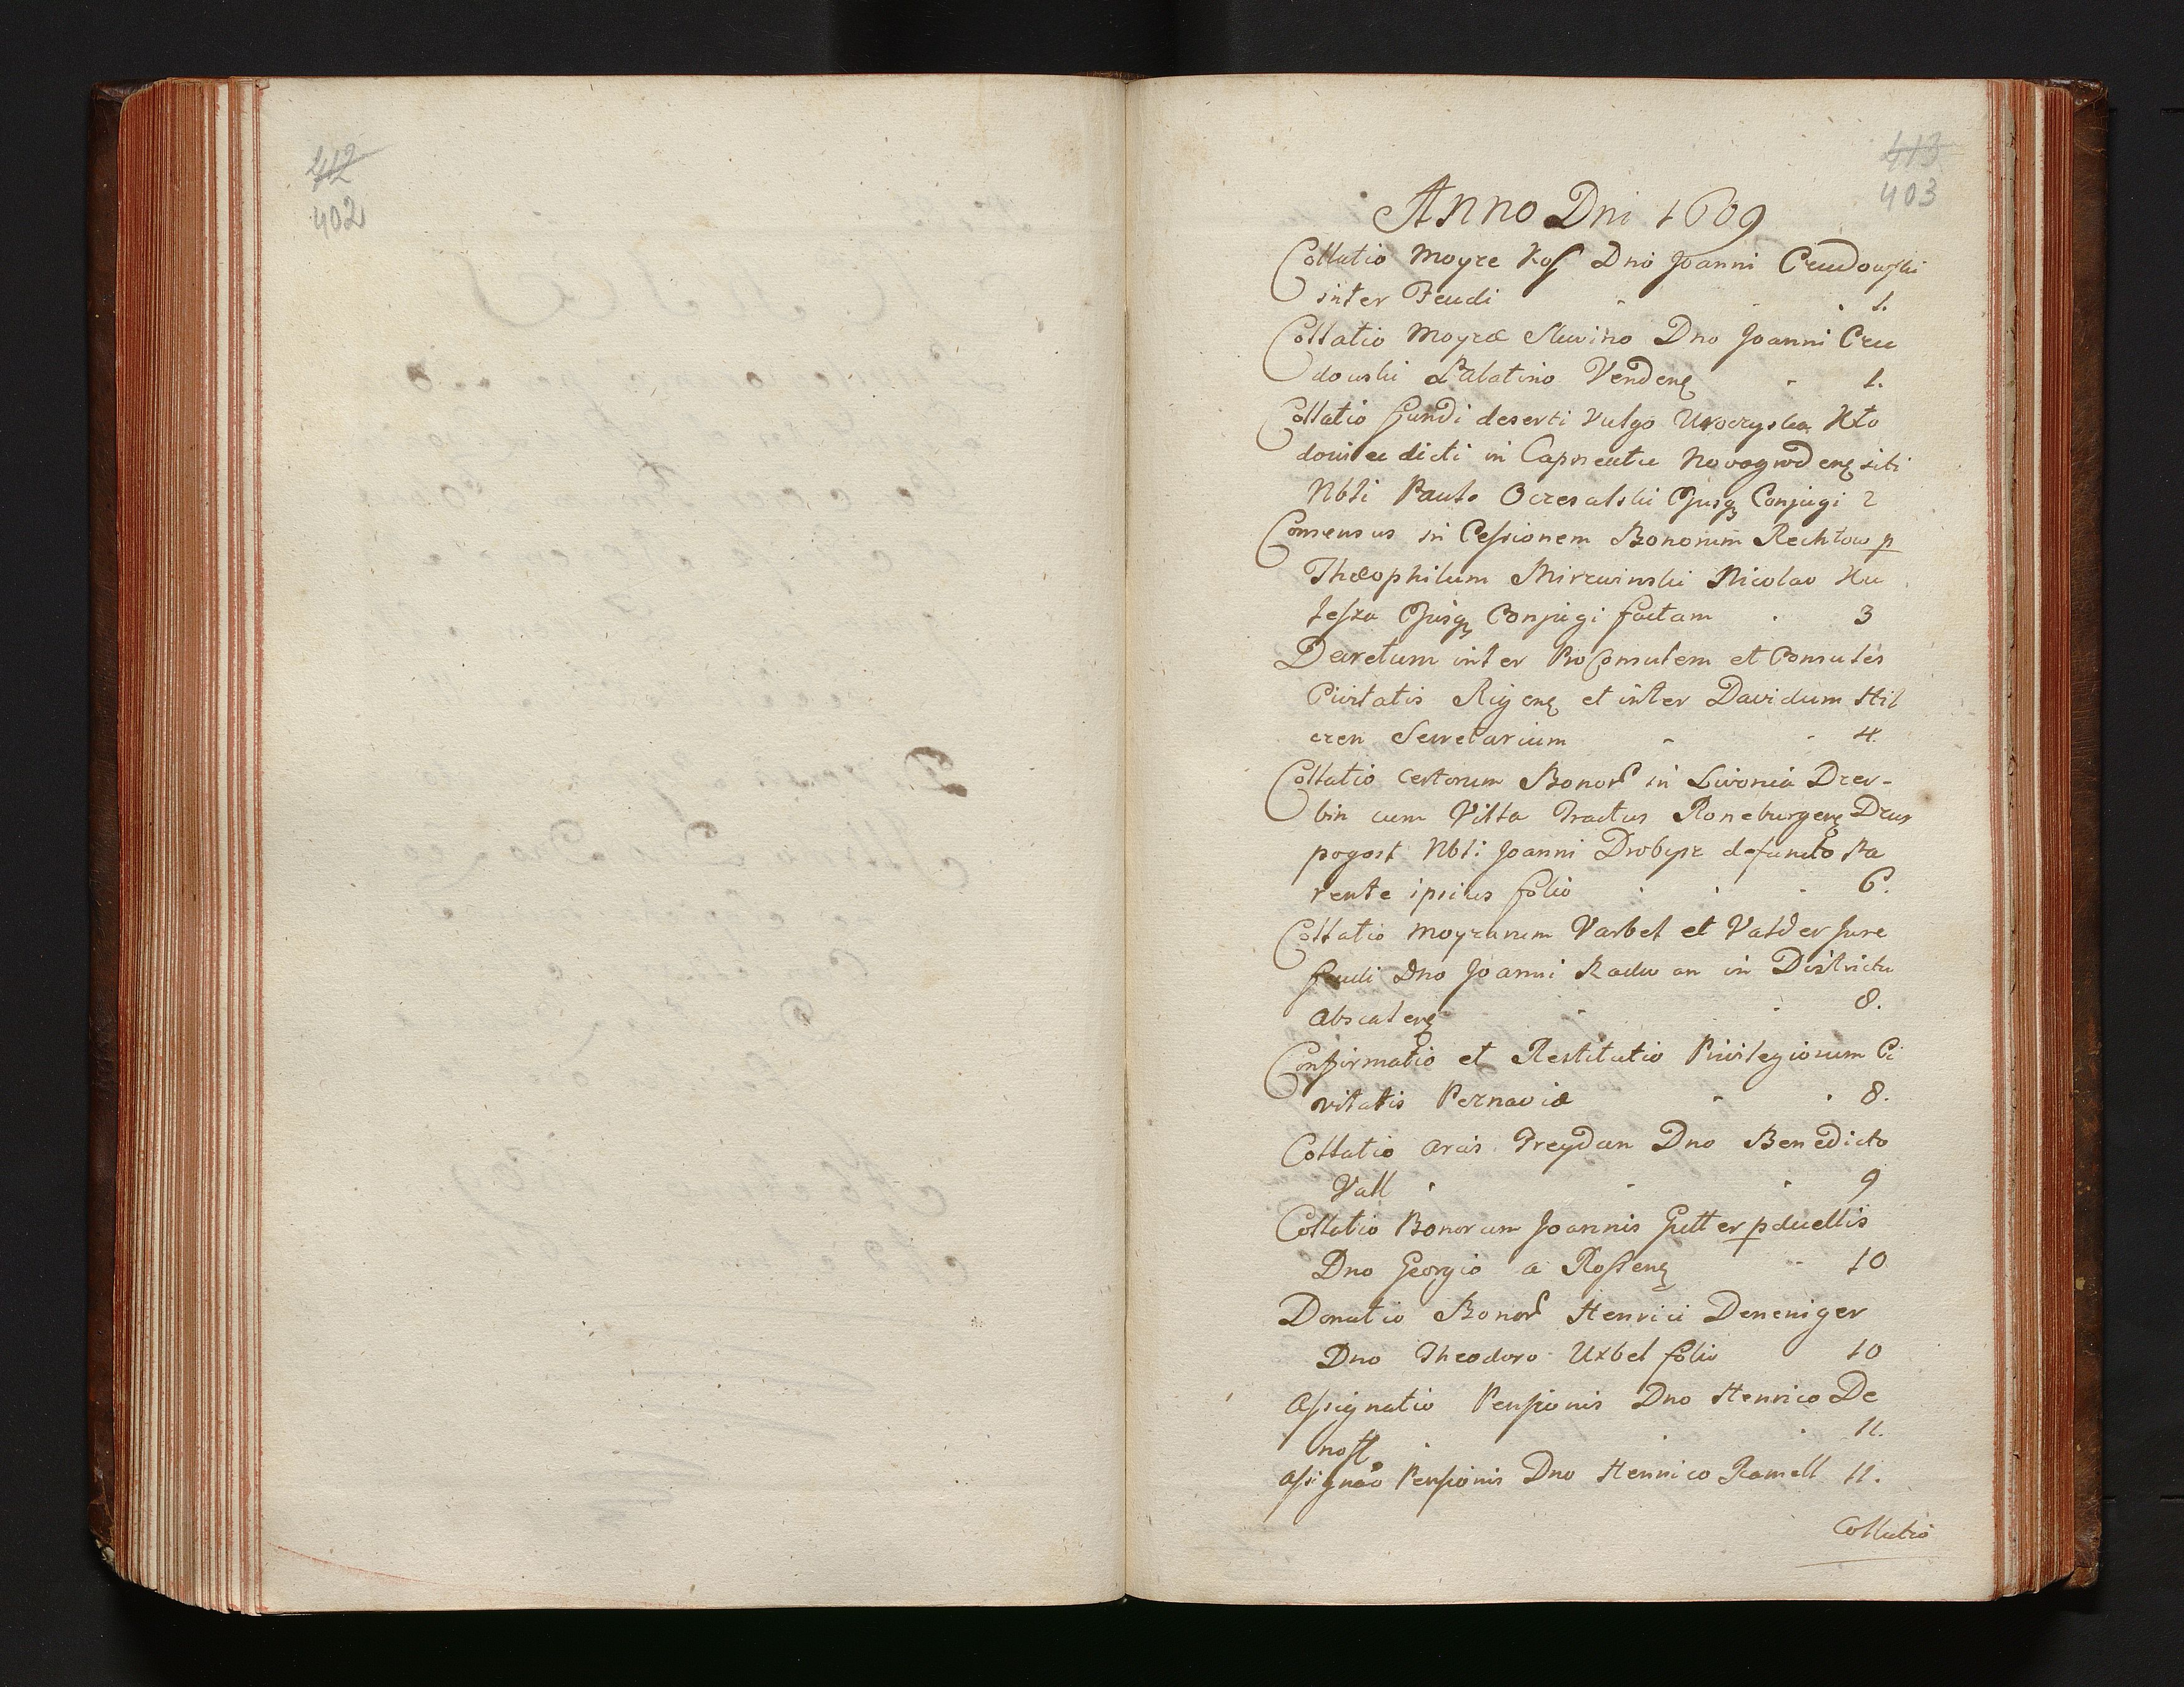 412
402
413
403
Anno Dni 1609
Collatio Moyze Kos Dno Joanni Ciudowski
inter Feudi 1.
Collatio Moyzæ Sluvino Dno Joanni Ciu
dowski Palatino Venden 1.
Collatio fundi deserti vulgo Uroczyska Kło
dowice dicti in Capneatu Novogrod en siti
Nbli Paulo Oczesalski Ejusq Conjugi 2
Consensus in Cessionem Bonorum Rechtow p
Theophilum Mirzwinski Nicolao Ku
leſza Ejusq Conjugi factam 3
Decretum inter ProConsulem et Consules
Civitatis Rigen et inter Davidum Hil
czen Secretarium 4
Collatio certorum Bonor in Livonia Drer-
bin cum Villa Tractus Roneburgen Drus
pogost Nbli Joanni Drobysz defuncto Pa
rente ipsius folio 6.
Collatio Moyzarum Varbel et Valder Jure
feudi Dno Joanni Radwan in Districtu
Abscalen 8.
Confirmatio et Restitutio Privilegiorum Ci
vitatis Pernaviæ 8.
Collatio arcis Treydan Dno Benedicto
Vall 9
Collatio Bonorum Joannis Gutter pduellis
Dno Georgio a Rossen 10
Donatio Bonor Henrici Deneniger
Dno Theodoro Uxbel folio 10
Assignatio Pensionis Dno Henrico De
nost 11.
Assignao Pensionis Dno Henrico Ramell 11.
Collatio